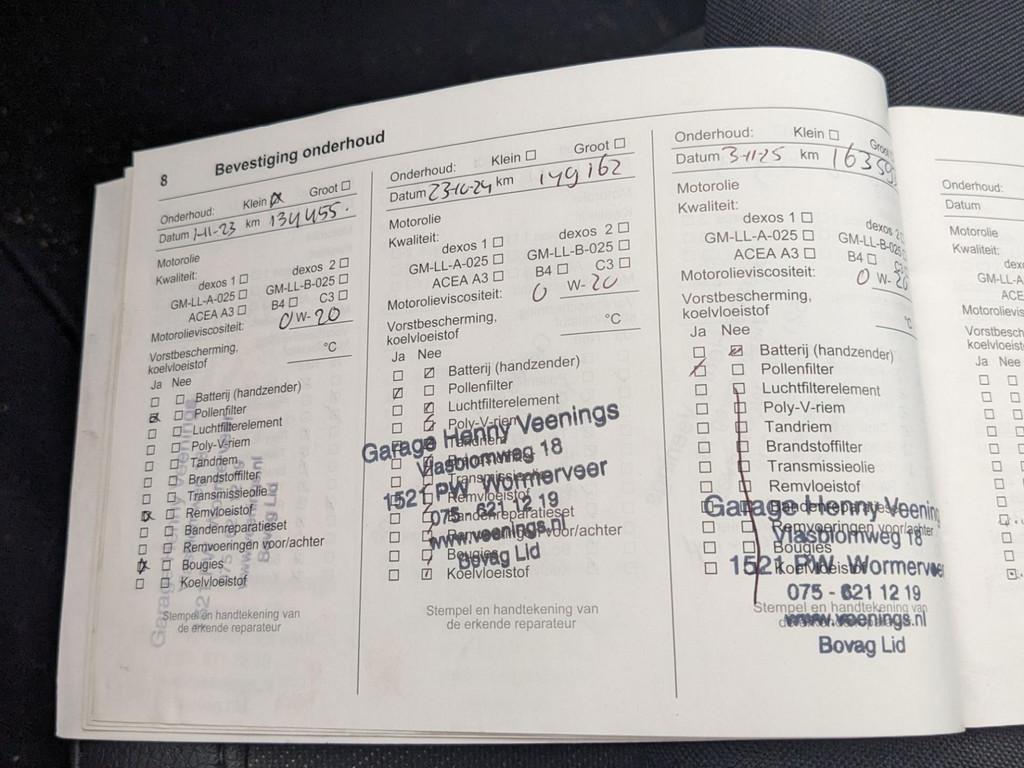 8 Bevestiging onderhoud
Onderhoud: Klein Groot
Datum 1-11-23 km 134455.
Motorolie
Kwaliteit:
dexos 1 dexos 2
GM-LL-A-025 GM-LL-B-025
ACEA A3 B4 C3
Motorolieviscositeit: 0 W-20
Vorstbescherming,
koelvloeistof °C
Ja Nee
Batterij (handzender)
Pollenfilter
Luchtfilterelement
Poly-V-riem
Tandriem
Brandstoffilter
Transmissieolie
Remvloeistof
Bandenreparatieset
Remvoeringen voor/achter
Bougies
Koelvloeistof
Garage Henny Veenings
www.veenings.nl
Bovag Lid
Stempel en handtekening van
de erkende reparateur
Onderhoud: Klein Groot
Datum 23-10-24 km 149162
Motorolie
Kwaliteit:
dexos 1 dexos 2
GM-LL-A-025 GM-LL-B-025
ACEA A3 B4 C3
Motorolieviscositeit: 0 W-20
Vorstbescherming,
koelvloeistof °C
Ja Nee
Batterij (handzender)
Pollenfilter
Luchtfilterelement
Poly-V-riem
Tandriem
Transmissieolie
Remvloeistof
Bandenreparatieset
voor/achter
Bougies
Koelvloeistof
Garage Henny Veenings
Vlasblomweg 18
1521 PW Wormerveer
075 - 621 12 19
www.veenings.nl
Bovag Lid
Stempel en handtekening van
de erkende reparateur
Onderhoud: Klein Groot
Datum 3-11-25 km 16359
Motorolie
Kwaliteit:
dexos 1 dexos 2
GM-LL-A-025 GM-LL-B-025
ACEA A3 B4 C3
Motorolieviscositeit: 0 W-20
Vorstbescherming,
koelvloeistof °C
Ja Nee
Batterij (handzender)
Pollenfilter
Luchtfilterelement
Poly-V-riem
Tandriem
Brandstoffilter
Transmissieolie
Remvloeistof
Bandenreparatieset
Remvoeringen voor/achter
Bougies
Koelvloeistof
Garage Henny Veenin
Vlasblomweg 18
1521 PW Wormervee
075 - 621 12 19
www.veenings.nl
Bovag Lid
Stempel en handtekening van
Onderhoud:
Datum
Motorolie
Kwaliteit:
dexo
GM-LL-A
ACE
Motorolievis
Vorstbesch
koelvloeist
Ja Nee